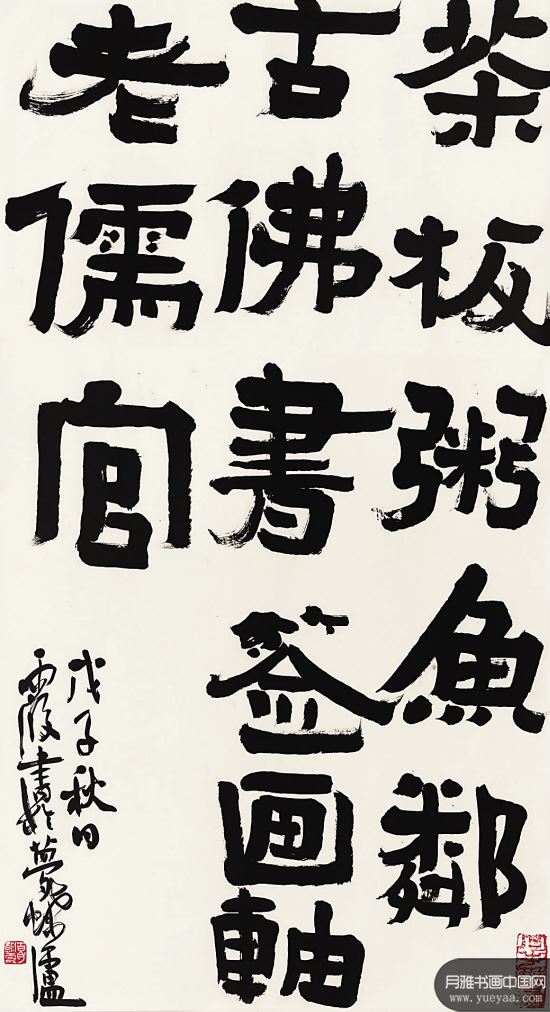 茶板粥魚鄰
古佛書签画軸
老儒官
戊子秋日
霞書於夢蝶廬
月雅书画中国网
www.yueyaa.com